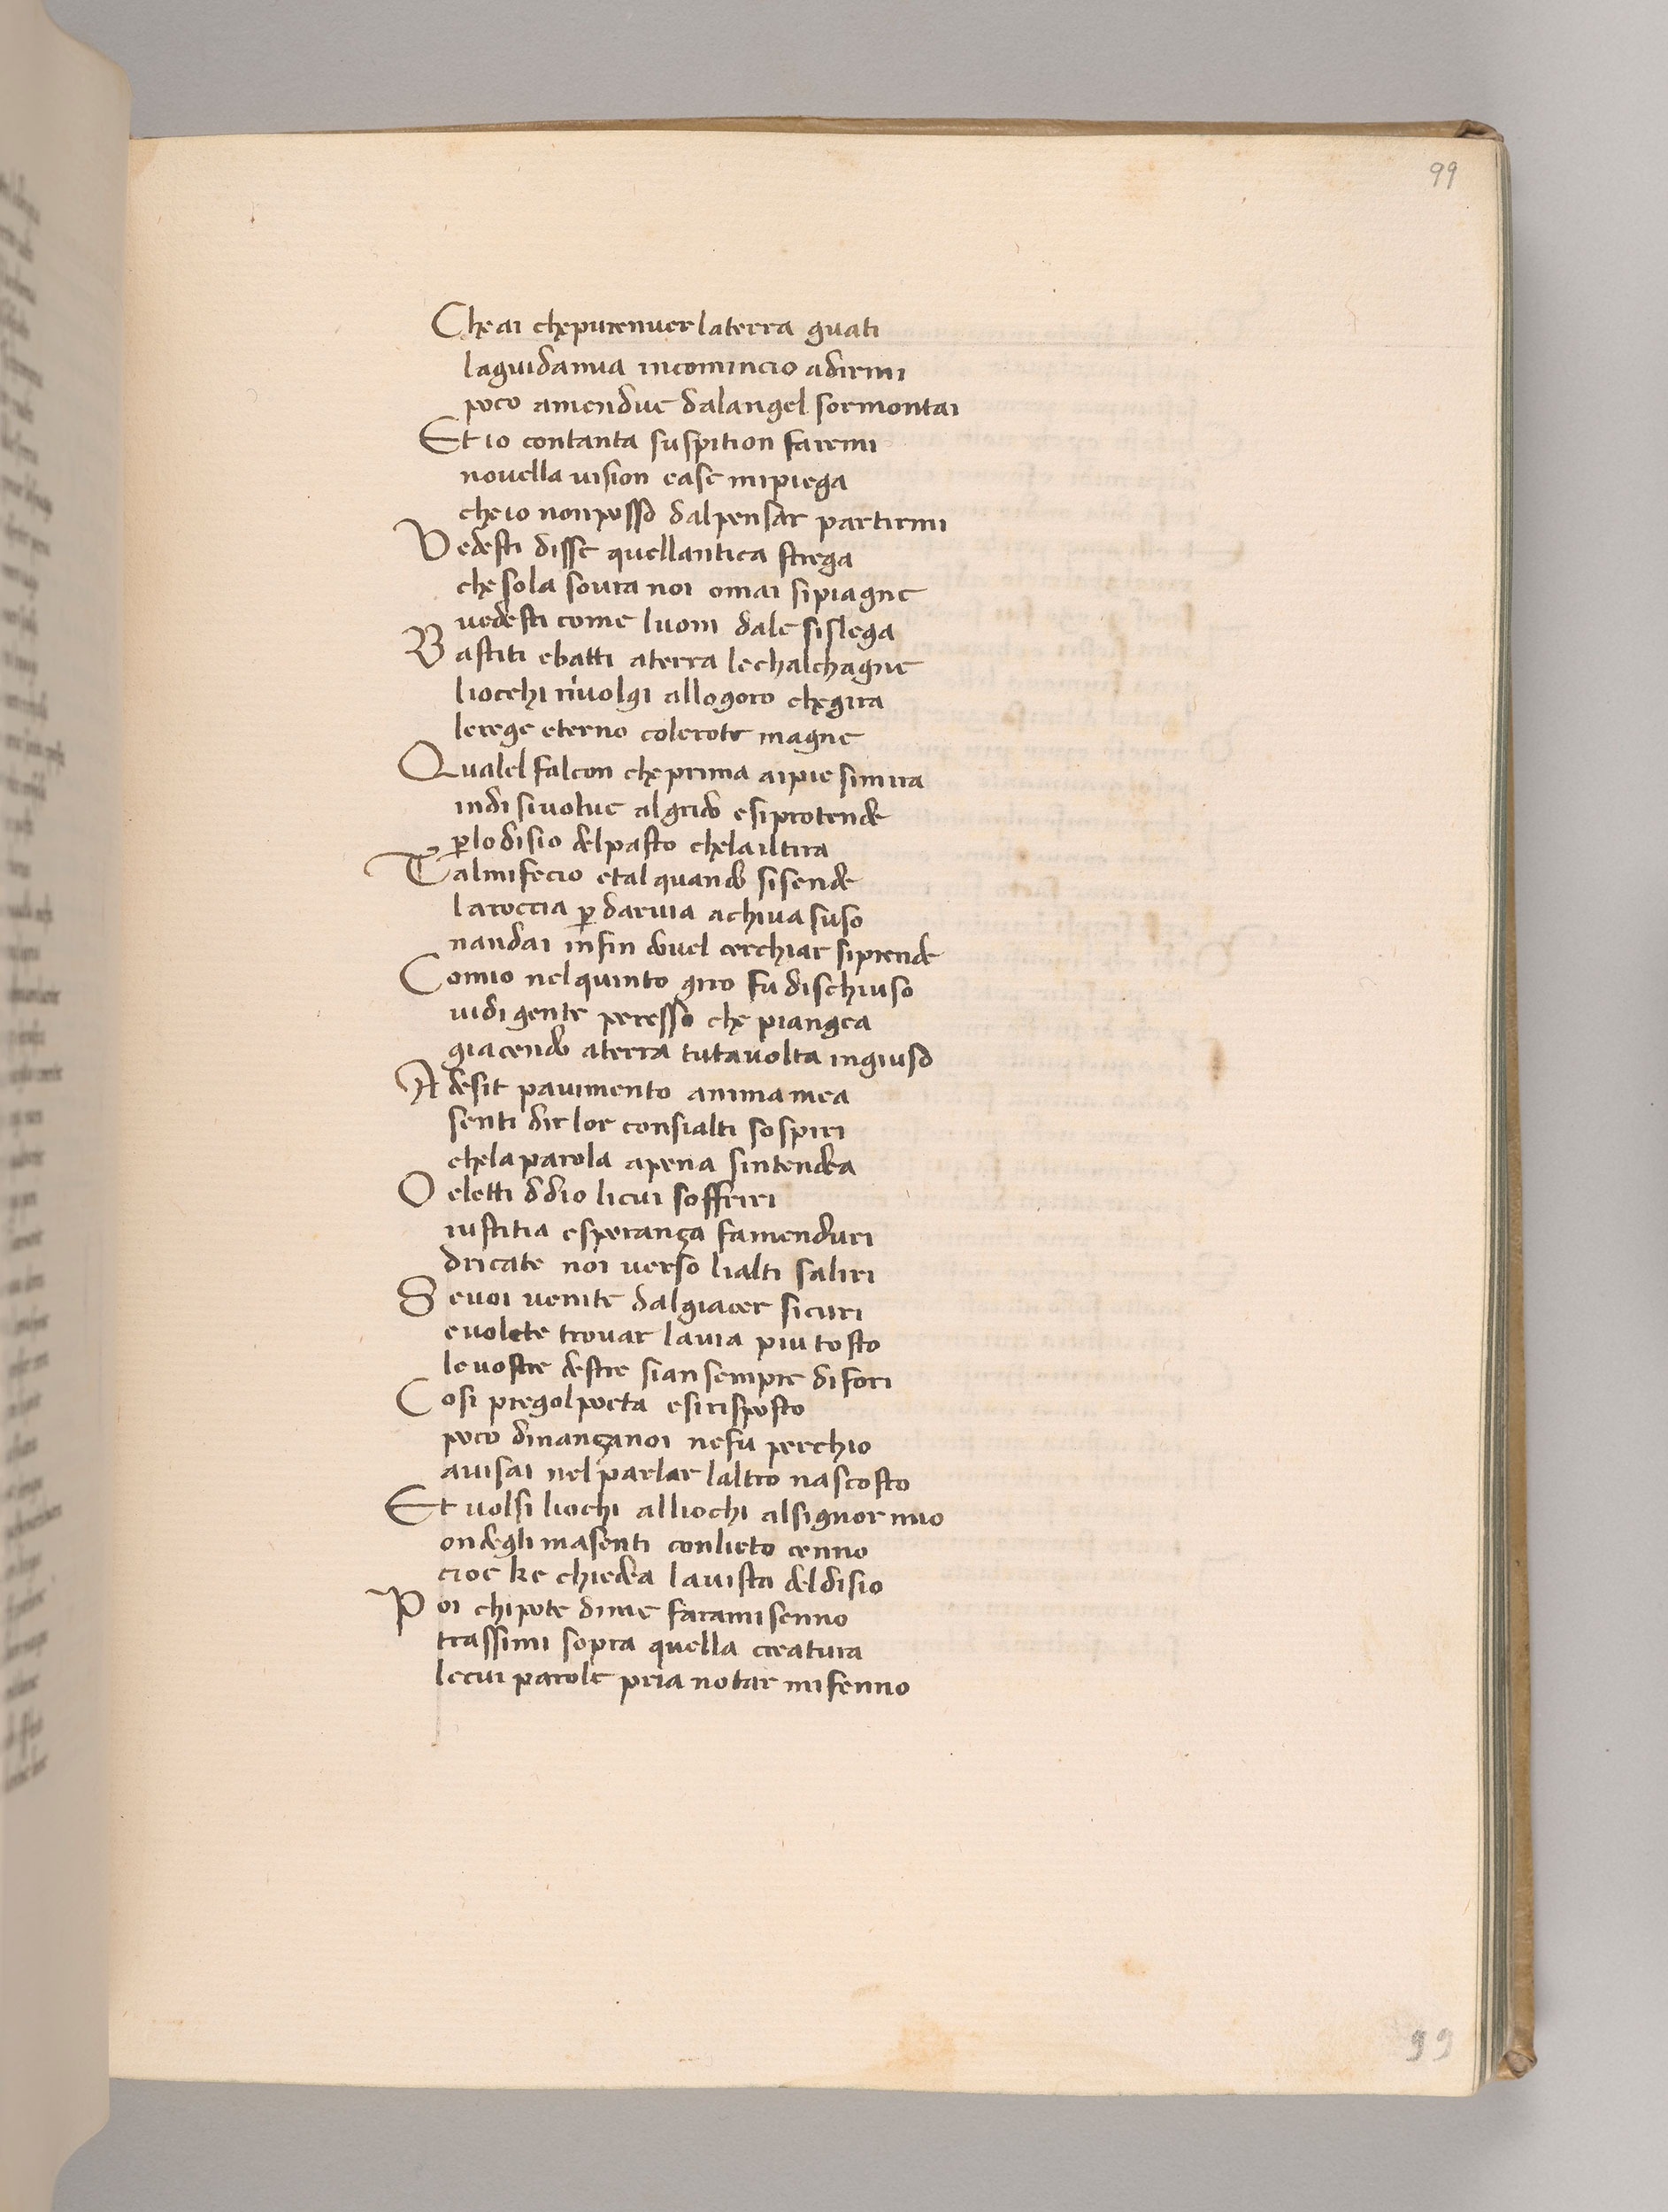 99
Che ai che pure nuer la terra guati
la guida mia incomincio a dirmi
poco amendue dalangel sormontai
Et io con tanta suspition fa irmi
nouella uision ease mi piega
che io non posso dal pensar partirmi
Vedesti disse quellantica strega
che sola soura noi omai si piagne
uedesti come luom dale si slega
Bastiti e batti a terra le chalchagne
li occhi riuolgi al logoro che gira
le rege eterno cole rote magne
Qualel falcon che prima ai pie si mira
indi si uolue al grido e si protende
per lo disio del pasto che la il tira
Tal mi fecio e tal quando si fende
la roccia per dar uia a chi ua suso
nandai infin douel cerchiar si prende
Comio nel quinto giro fu dischiuso
uidi gente per esso che piangea
giacendo a terra tuta uolta in giuso
Adesit pauimento anima mea
senti dir lor con si alti sospiri
che la parola apena sintendea
O eletti d dio li cui soffriri
iustitia e speranza fa men duri
driczate noi verso li alti saliri
Se uoi uenite dal giacer sicuri
e uolete trouar la uia piu tosto
le uostre destre sian sempre di fori
Cosi pregol poeta e si risposto
poco dinanza noi ne fu per chio
auisai nel parlar laltro nascosto
Et uolsi li ochi alli ochi al signor mio
ondegli masenti con lieto cenno
cioe ke chiedea la uista del disio
Poi chi pote di me fara mi senno
trassimi sopra quella creatura
le cui parole pria notar mi fenno
99